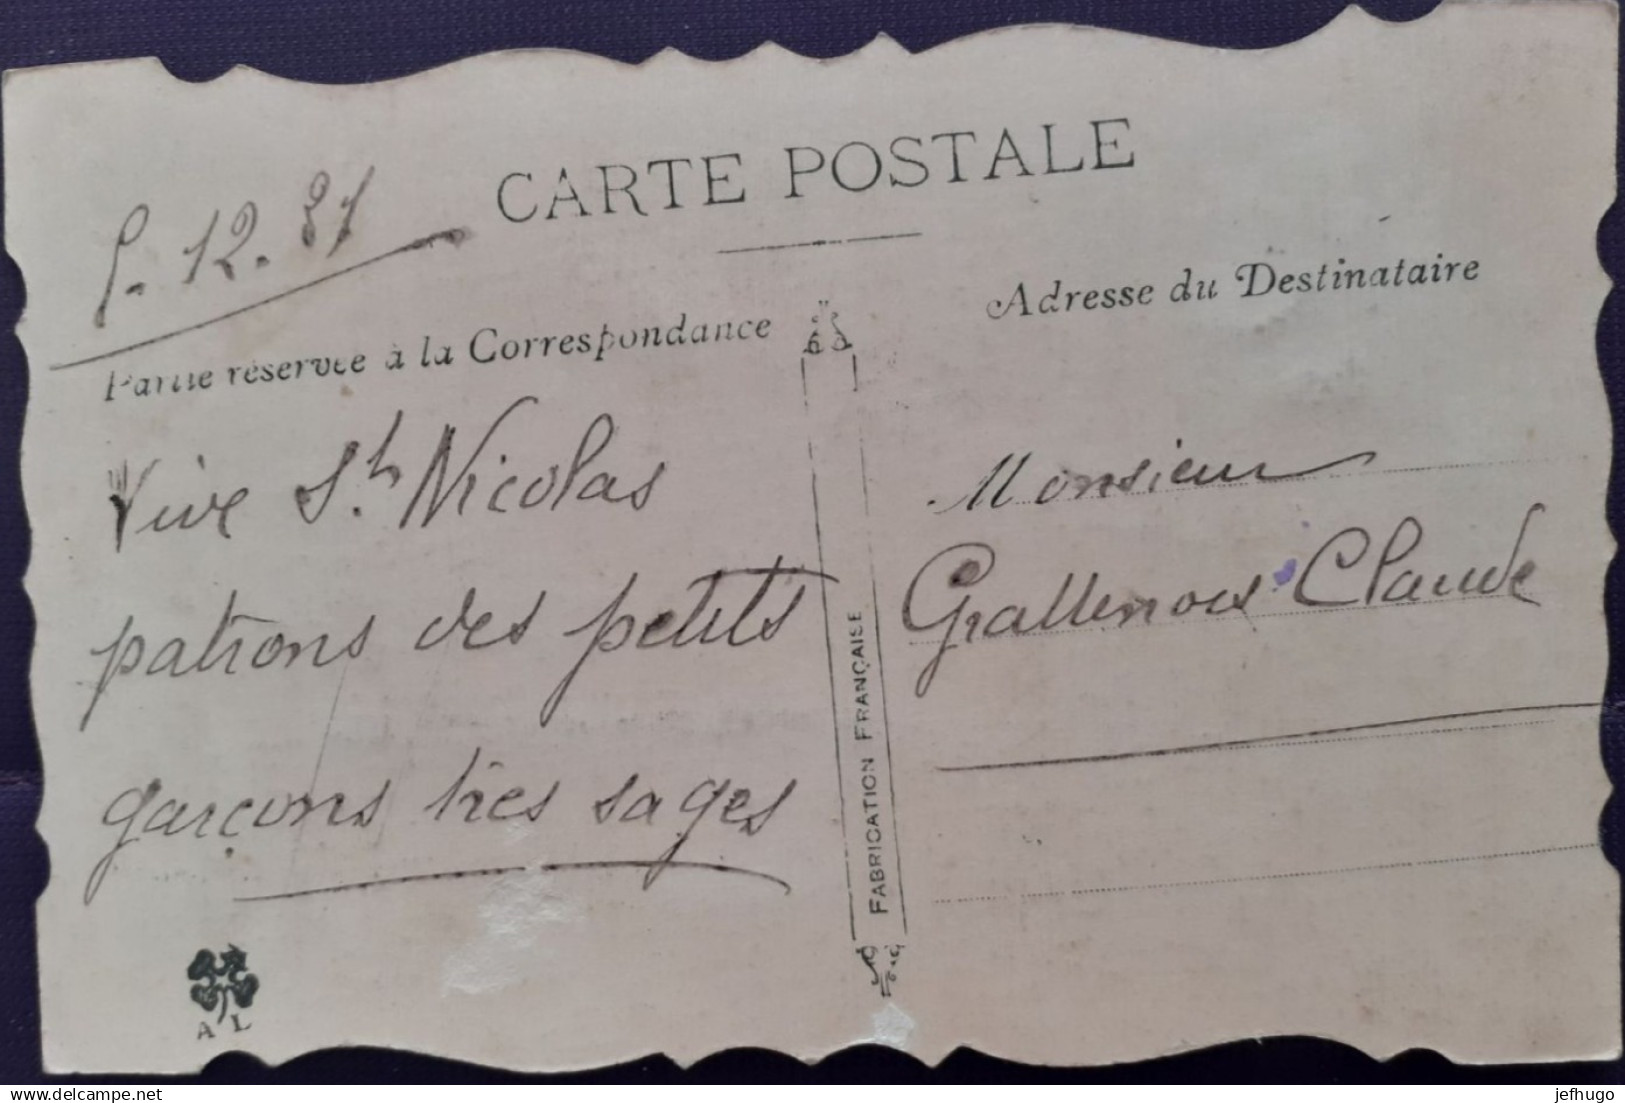 CARTE POSTALE
5. 12. 31
Partie réservée à la Correspondance
Adresse du Destinataire
Vive St. Nicolas
patrons des petits
garçons très sages
Monsieur
Claude
FABRICATION FRANÇAISE
A L
delcampe.net
jefhugo